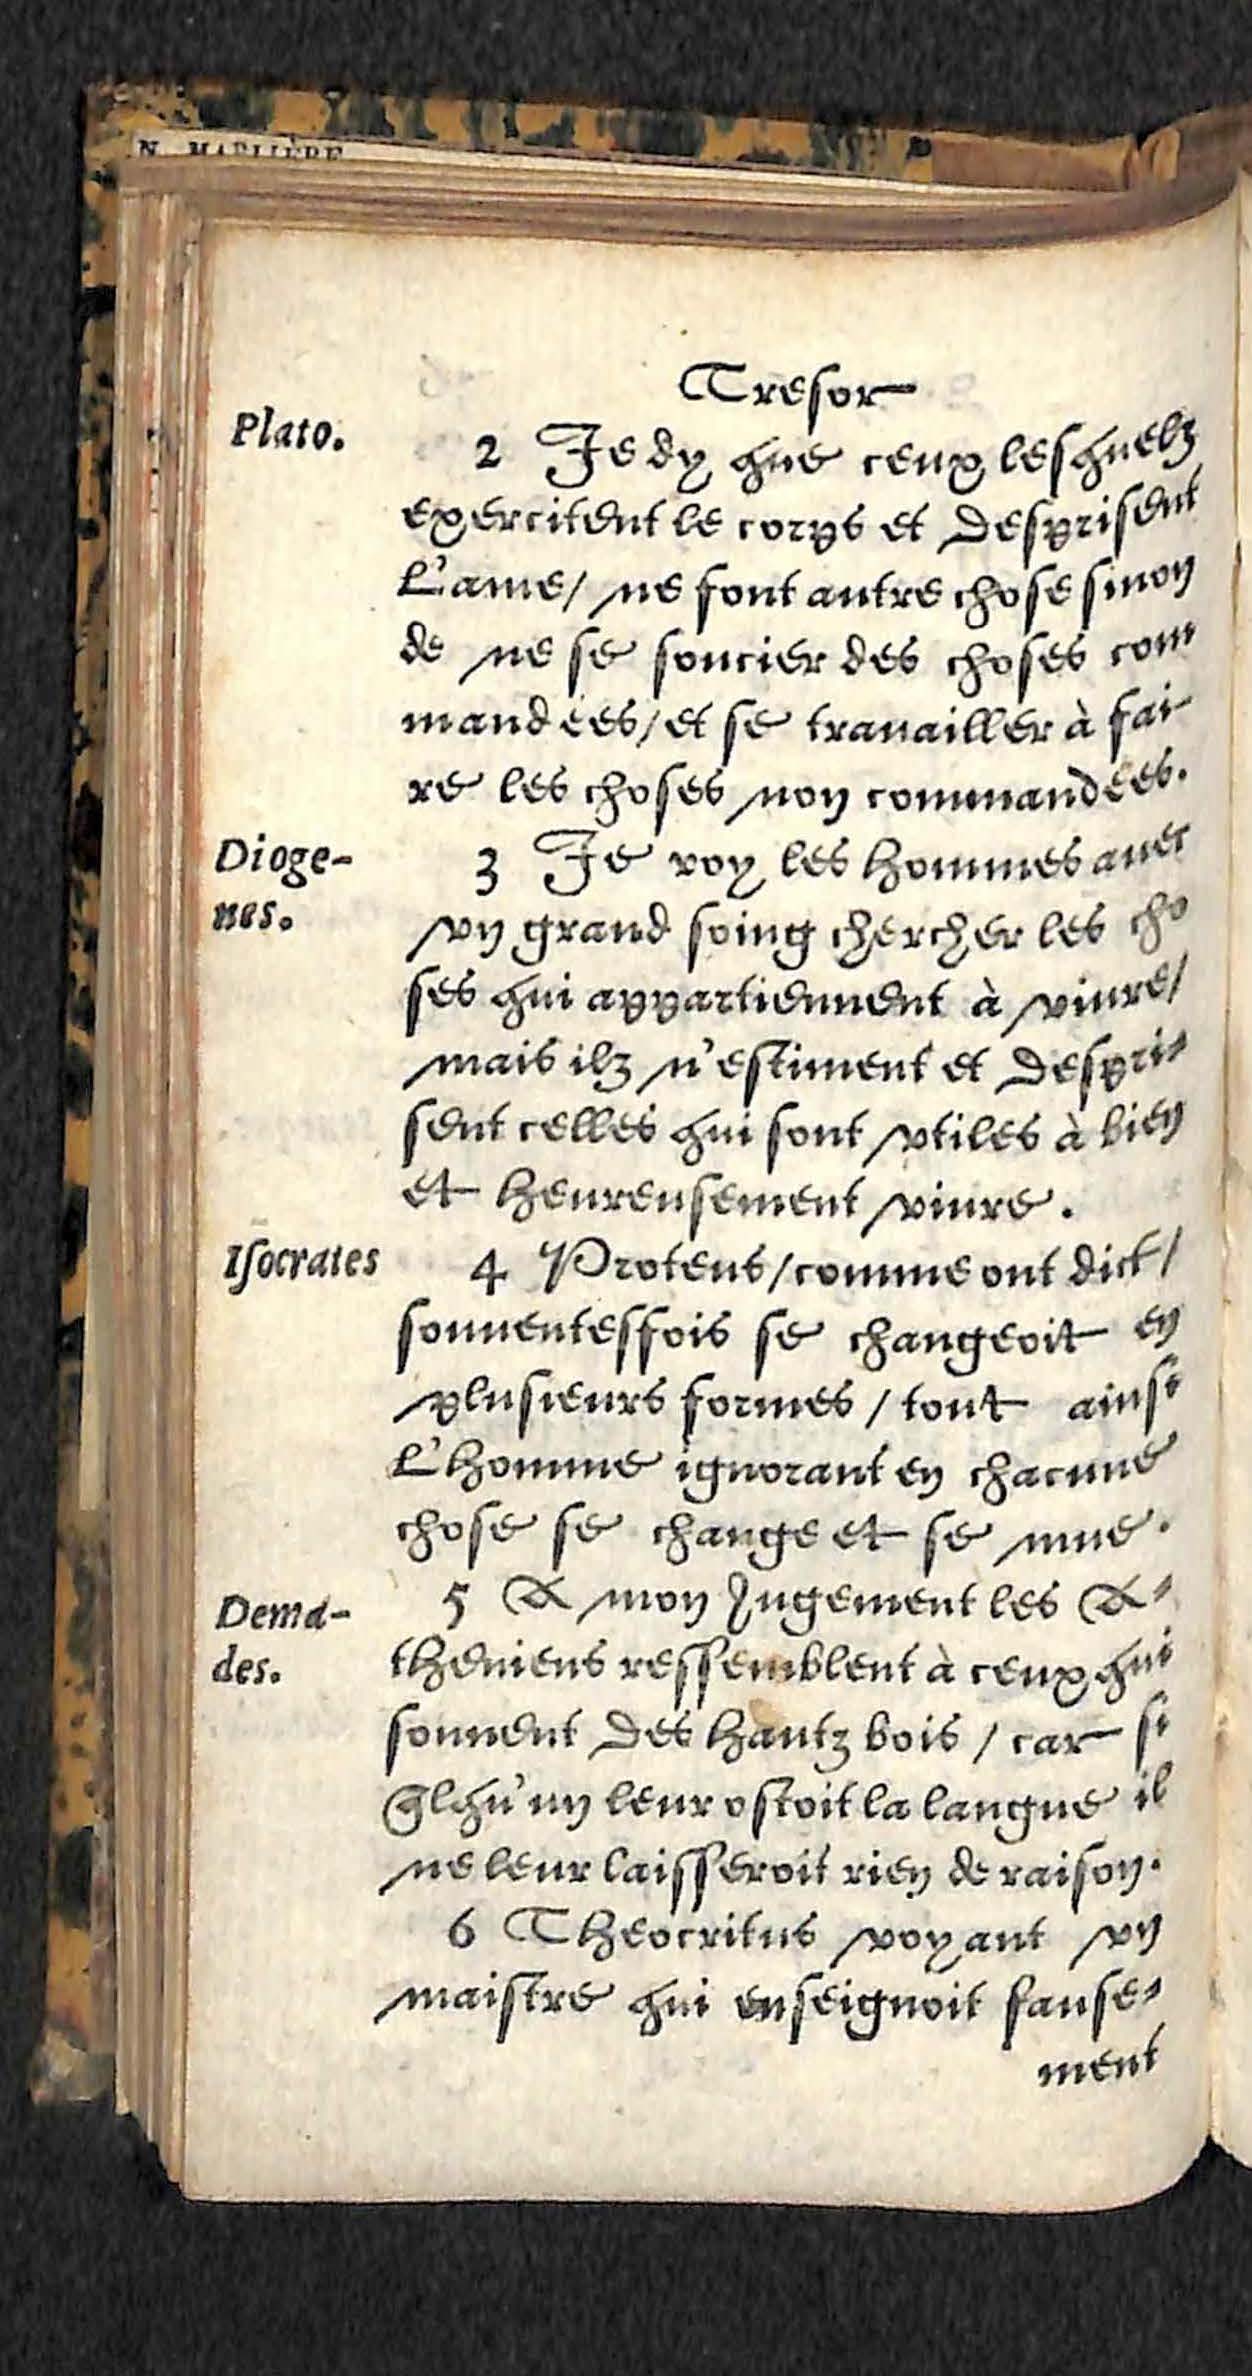 N. MARLIÈRE
Tresor
Plato.
2 Je dy que ceux lesquelz
exercitent le corps et desprisent
L'ame / ne font autre chose sinon
de ne se soucier des choses com
mandées / et se trauailler à fai-
re les choses non commandées.
Dioge-
nes.
3 Je voy les hommes auec
vn grand soing chercher les cho
ses qui appartiennent à viure /
mais ilz n'estiment et despri-
sent celles qui sont vtiles à bien
et heureusement viure .
Isocrates
4 Proteus / comme ont dict /
souuentesfois se changeoit en
plusieurs formes / tout ainsi
L'homme ignorant en chacune
chose se change et se mue.
Dema-
des.
5 A mon Jugement les A-
theniens ressemblent à ceux qui
sonnent des hautz bois / car si
qlqu'un leur ostoit la langue il
ne leur laisseroit rien de raison.
6 Theocritus voyant vn
maistre qui enseignoit fause-
ment